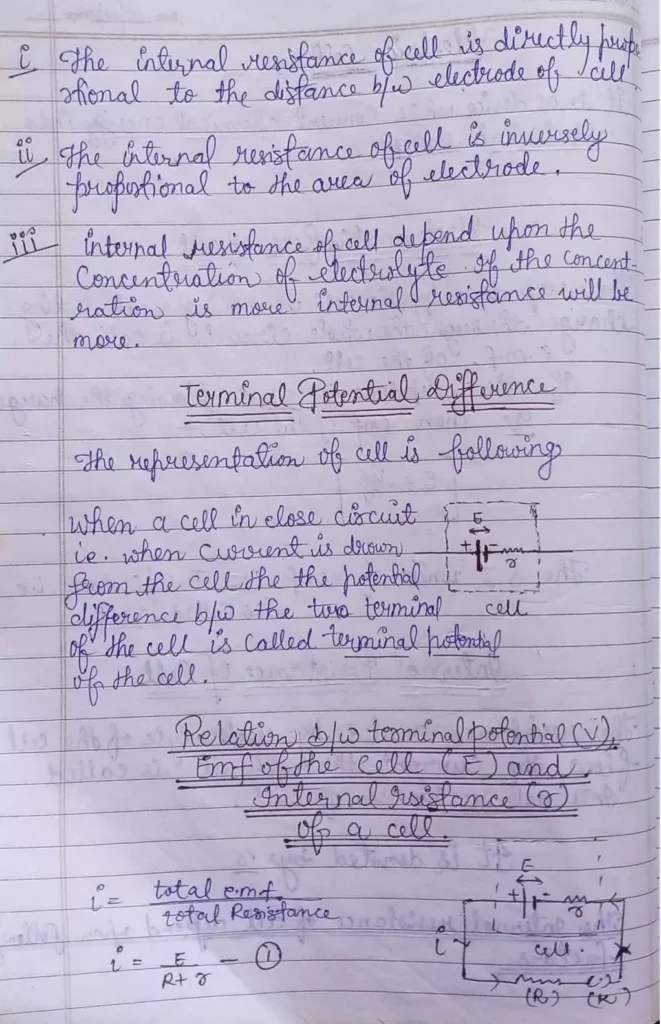 i The internal resistance of cell is directly propo
rtional to the distance b/w electrode of cell.
ii The internal resistance of cell is inversely
propostional to the area of electrode.
iii internal resistance of cell depend upon the
Concentration of electrolyte if the concent-
ration is more internal resistance will be
more.
Terminal Potential Difference
The representation of cell is following
When a cell in close circuit
ie. when current is drown
from the cell the the potential
difference b/w the two terminal
of the cell is called terminal potential
of the cell.
E
+ -
r
cell
Relation b/w terminal potential (V),
Emf of the cell (E) and
Internal rsistance (r)
of a cell.
i = total e.m.f. / total Resistance
i = E / R + r - ①
E
+ -
r
i
cell.
(R) (K)